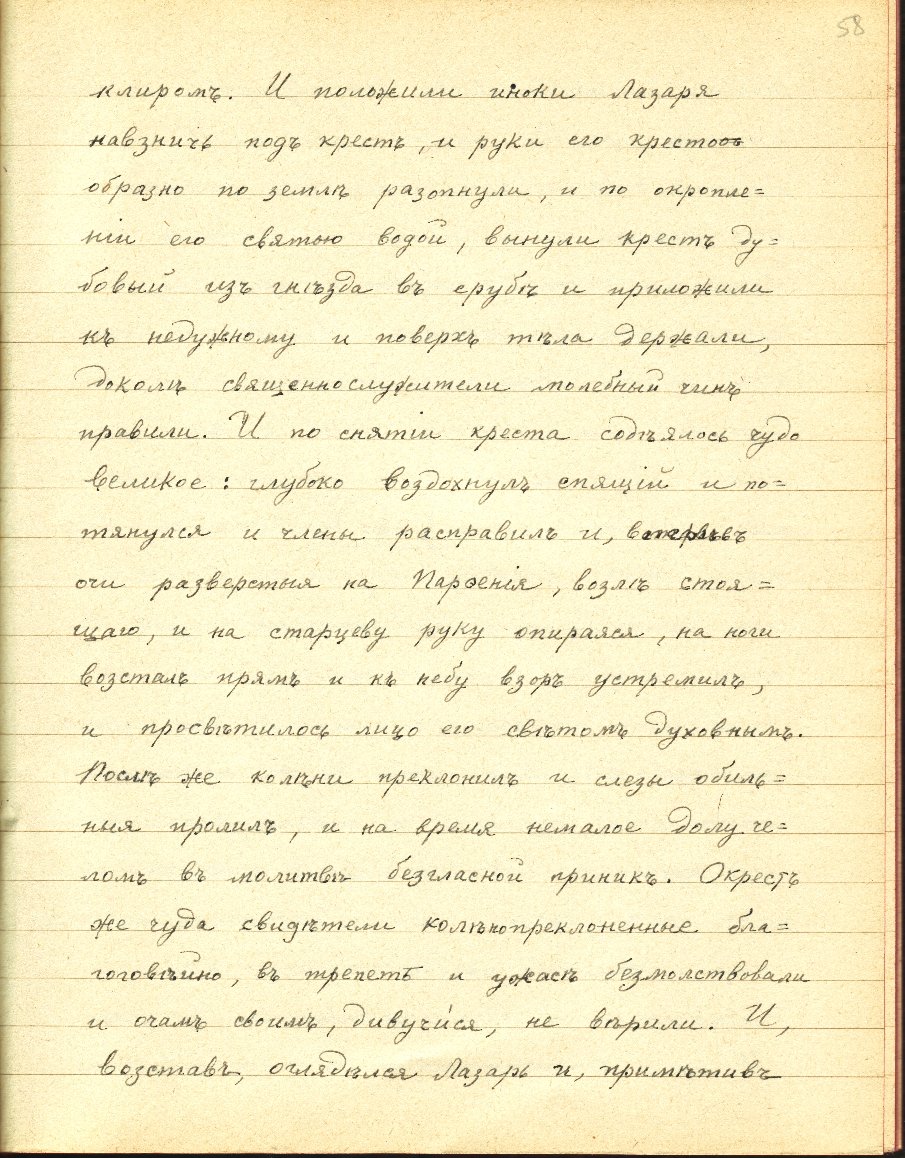 58
клиромъ. И положили иноки Лазаря
навзничь подъ крестъ, и руки его кресто
образно по землѣ разопнули, и по окропле=
ніи его святою водой, вынули крестъ ду=
бовый изъ гнѣзда въ срубѣ и приложили
къ недужному и поверхъ тѣла держали,
доколѣ священнослужители молебный чинъ
правили. И по снятіи креста содѣялось чудо
великое: глубоко воздохнулъ спящій и по=
тянулся и члены расправилъ и,
очи разверстыя на Парѳенія, возлѣ стоя=
щаго, и на старцеву руку опираяся, на ноги
возсталъ прямъ и къ небу взоръ устремилъ,
и просвѣтилось лицо его свѣтомъ духовнымъ.
Послѣ же колѣни преклонилъ и слезы обиль=
ныя пролилъ, и на время немалое долу че=
ломъ въ молитвѣ безгласной приникъ. Окрестъ
же чуда свидѣтели колѣнопреклоненные бла=
гоговѣйно, въ трепетѣ и ужасѣ безмолствовали
и очамъ своимъ, дивучи́ся, не вѣрили. И,
возставъ, оглядѣлся Лазарь и, примѣтивъ